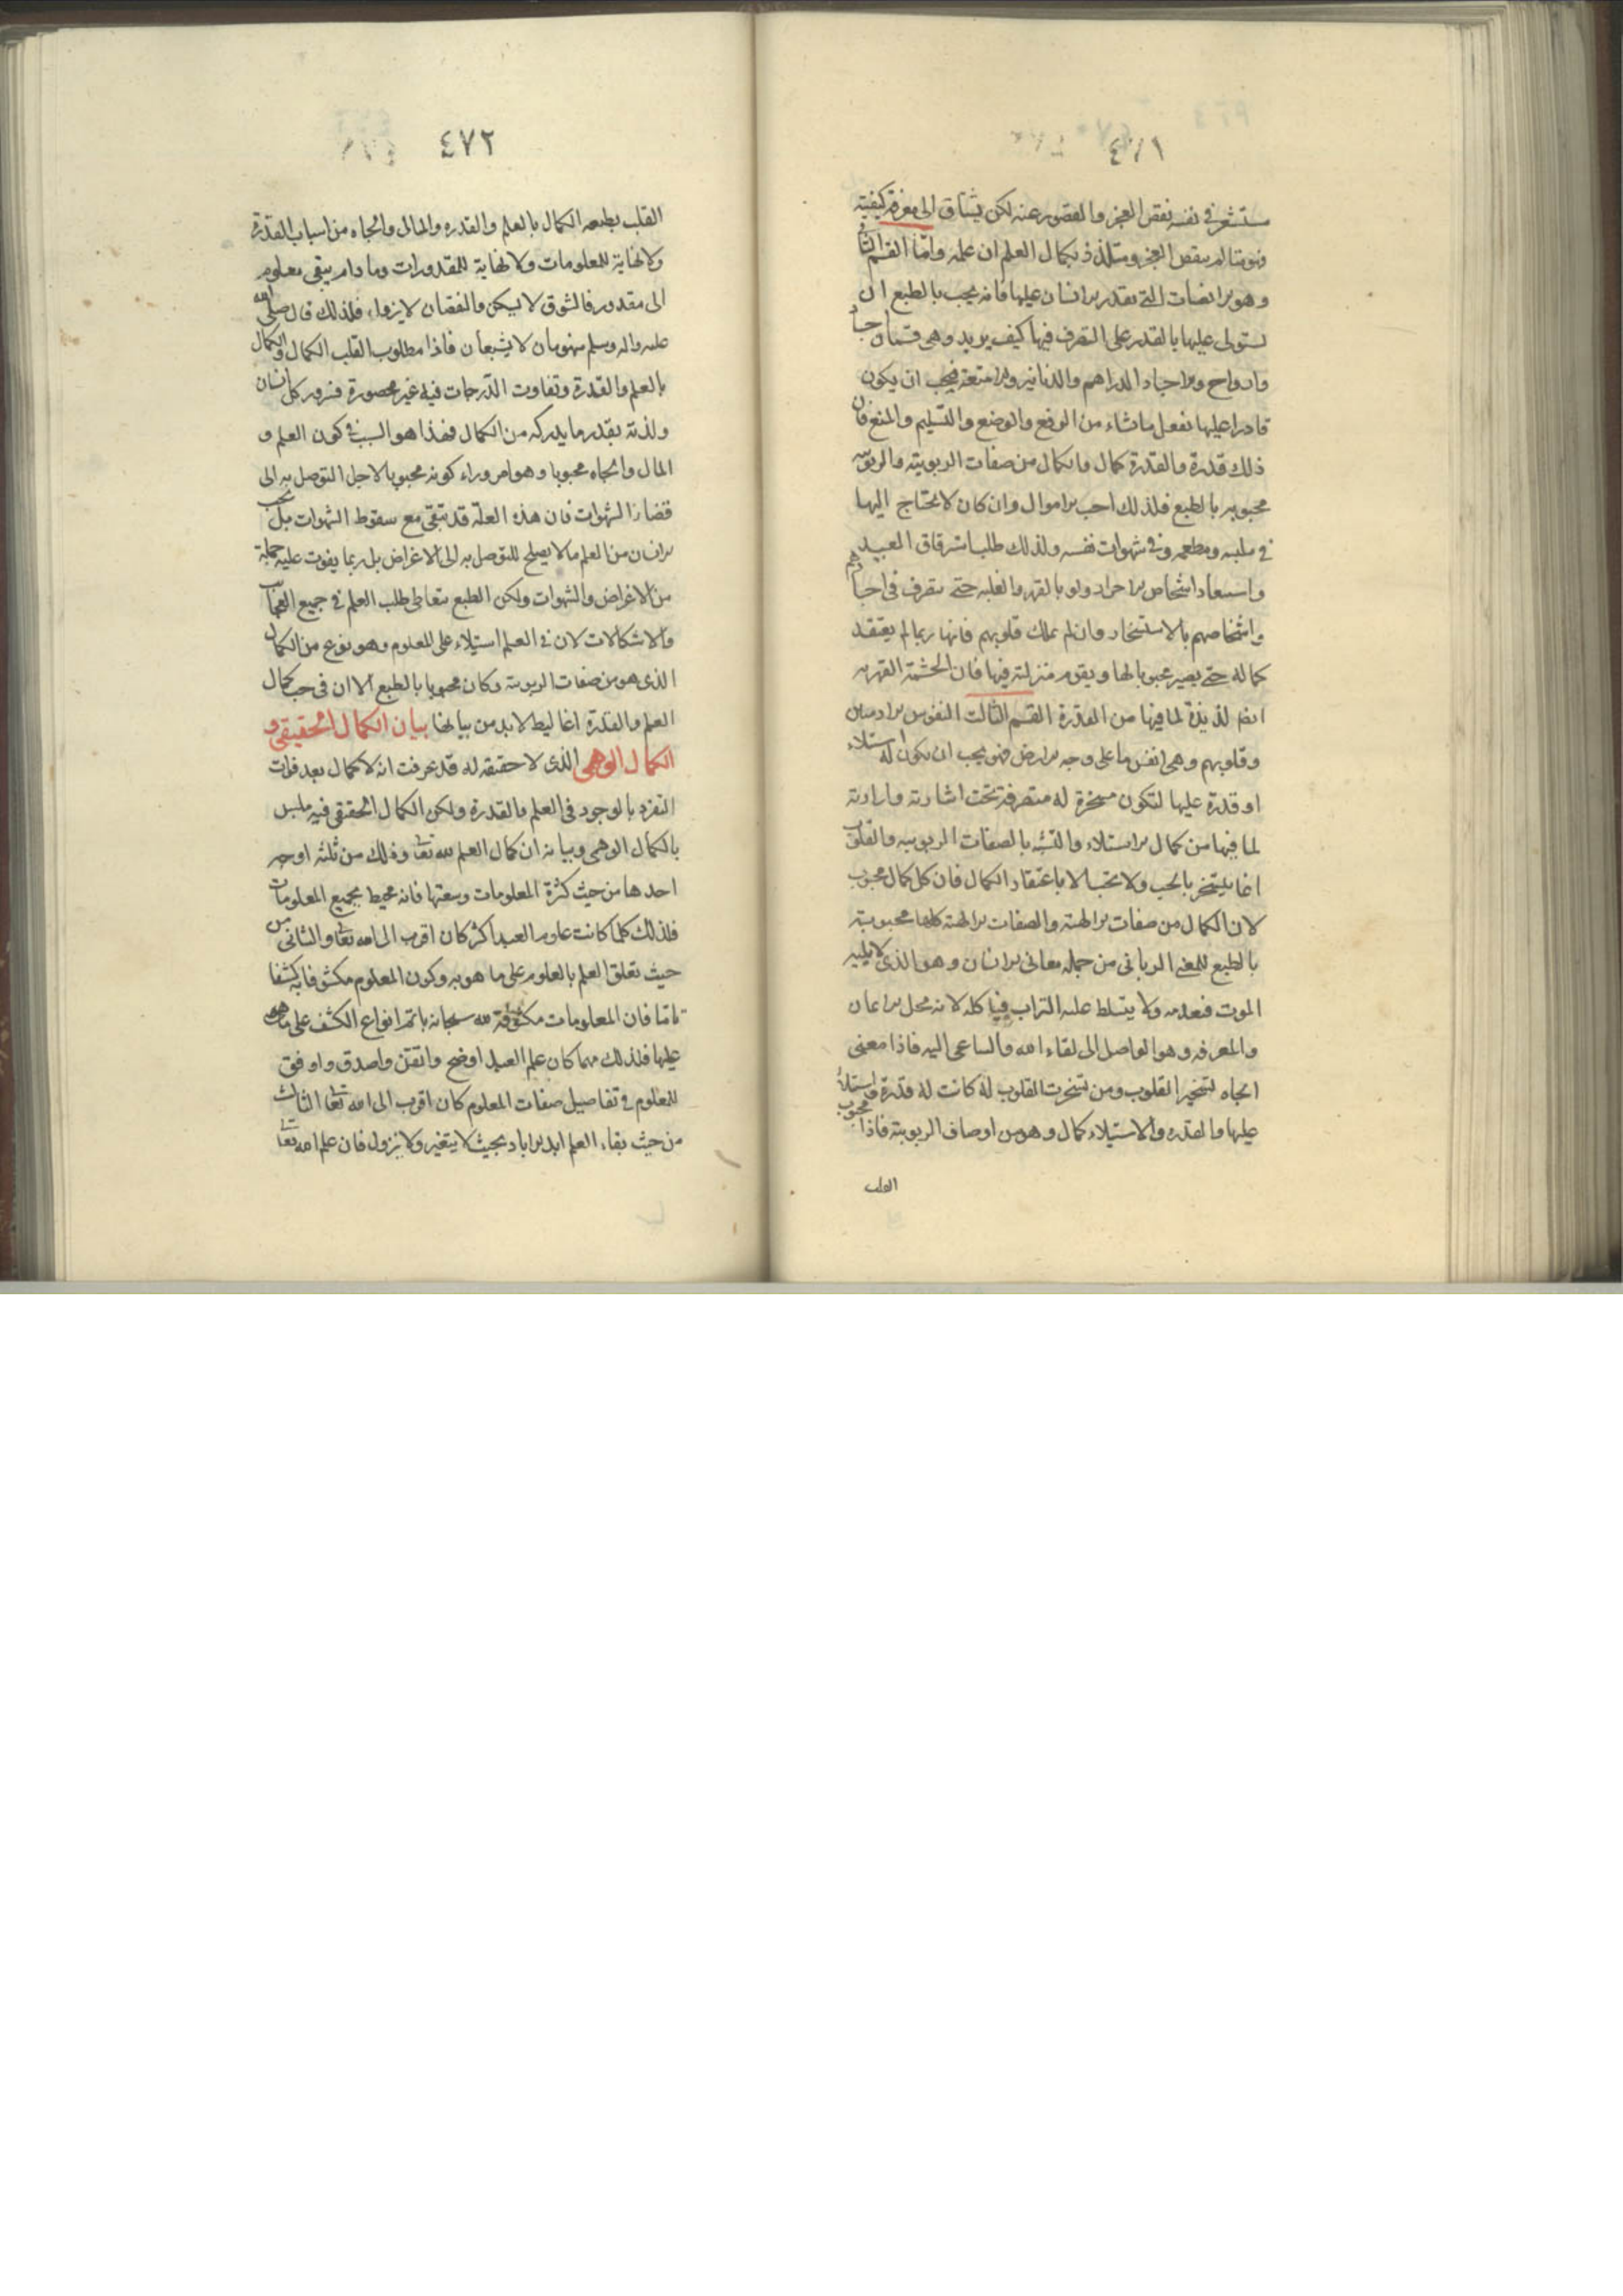 ٤٧١
مستشعر في نفسه نقص العجز والقصور عنه لكن يشتاق الى معرفة كيفيته
فهو متالم بنقص العجز ومتلذذ بكمال العلم ان علمه واما القسم الثاني
وهو الارضيات التي يقدر الانسان عليها فانه يحب بالطبع ان
يستولى عليها بالقدرة على التصرف فيها كيف يريد وهي قسمان اجساد
وارواح والاجساد الدراهم والدنانير والامتعة فيحب ان يكون
قادرا عليها يفعل ما شاء من الرفع والوضع والتسليم والمنع فان
ذلك قدرة والقدرة كمال والكمال من صفات الربوبية والربوبية
محبوبه بالطبع فلذلك احب الاموال وان كان لا يحتاج اليها
في ملبسه ومطعمه وفي شهوات نفسه ولذلك طلب استرقاق العبيد
واستعباد اشخاص الاحرار ولو بالقهر والغلبه حتى يتصرف في اجسادهم
واشخاصهم بالاستسخار وان لم يملك قلوبهم فانها ربما لم يعتقد
كماله حتى يصير محبوبا لها ويقوم منزلته فيها فان الحشمة القهرية
ايضا لذيذة لما فيها من القدرة القسم الثالث النفوس الادميين
وقلوبهم وهي انفس ما على وجه الارض فهو يحب ان يكون له استيلاء
او قدرة عليها لتكون مسخرة له متصرفة تحت اشارته وارادته
لما فيها من كمال الاستيلاء والتشبه بالصفات الربوبيه والقلوب
انما يتسخر بالحب ولا تحب الا باعتقاد الكمال فان كل كمال محبوب
لان الكمال من صفات الالهية والصفات الالهية كلها محبوبة
بالطبع للمعنى الرباني من جمله معاني الانسان وهو الذي لا يبليه
الموت فيعدمه ولا يتسلط عليه التراب فياكله لانه محل الايمان
والمعرفه وهو الواصل الى لقاء الله والساعي اليه فاذا معنى
الجاه تسخير القلوب ومن تسخرت القلوب له كانت له قدرة واستيلاء
عليها والقدره والاستيلاء كمال وهو من اوصاف الربوبية فاذا محبوب
القلب
٤٧٢
القلب بطبعه الكمال بالعلم والقدره والمال والجاه من اسباب القدرة
ولا نهاية للمعلومات ولا نهاية للمقدورات وما دام يبقى معلوم
الى مقدور فالشوق لا يسكن والنقصان لا يزول فلذلك قال صلى الله
عليه واله وسلم منهومان لا يشبعان فاذا مطلوب القلب الكمال والكمال
بالعلم والقدرة وتفاوت الدرجات فيه غير محصورة فسرور كل انسان
ولذته بقدر ما يدركه من الكمال فهذا هو السبب في كون العلم و
المال والجاه محبوبا وهو امر وراء كونه محبوبا لاجل التوصل به الى
قضاء الشهوات فان هذه العلة قد تبقى مع سقوط الشهوات بل يحب
الانسان من العلم ما لا يصلح للتوصل به الى الاغراض بل ربما يفوت عليه جملة
من الاغراض والشهوات ولكن الطبع يتعاطى طلب العلم في جميع العجائب
والاشكالات لان في العلم استيلاء على المعلوم وهو نوع من الكمال
الذي هو من صفات الربوبية وكان محبوبا بالطبع الا ان في حب كمال
العلم والقدرة اغاليط لابد من بيانها بيان الكمال الحقيقي و
الكمال الوهمي الذي لا حقيقه له قد عرفت انه لا كمال بعد فوات
التفرد بالوجود في العلم والقدرة ولكن الكمال الحقيقي فيه ملبس
بالكمال الوهمي وبيانه ان كمال العلم لله تعالى وذلك من ثلثه اوجه
احدها من حيث كثرة المعلومات وسعتها فانه محيط بجميع المعلومات
فلذلك كلما كانت علوم العبد اكثر كان اقرب الى الله تعالى والثاني من
حيث تعلق العلم بالعلوم على ما هو به وكون المعلوم مكشوفا به كشفا
تاما فان المعلومات مكشوفة لله سبحانه باتم انواع الكشف على ما هي
عليها فلذلك مهما كان علم العبد اوضح واتقن واصدق واوفق
للمعلوم في تفاصيل صفات المعلوم كان اقرب الى الله تعالى الثالث
من حيث بقاء العلم ابد الاباد بحيث لا يتغير ولا يزول فان علم الله تعالى